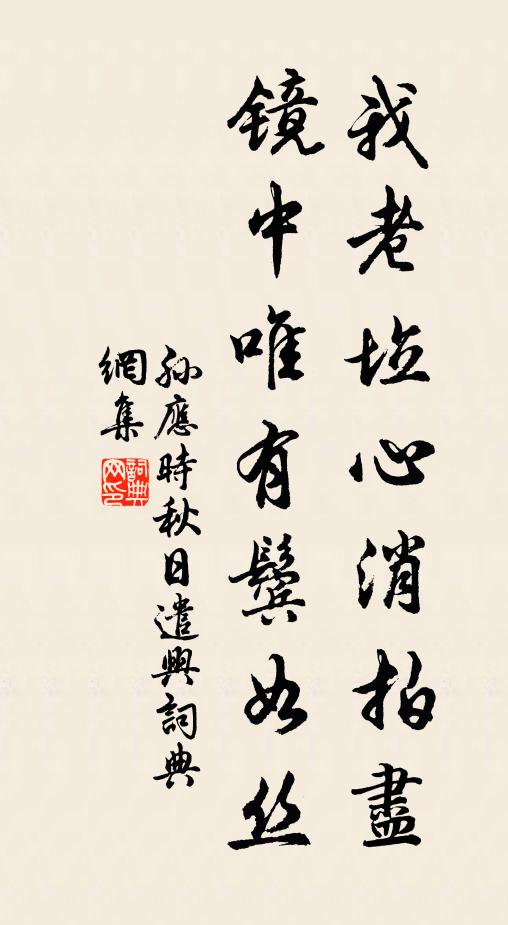 我老心消拍盡
鏡中唯有鬢如丝
孫應時秋日遣興詞典
網集
詞典
网印